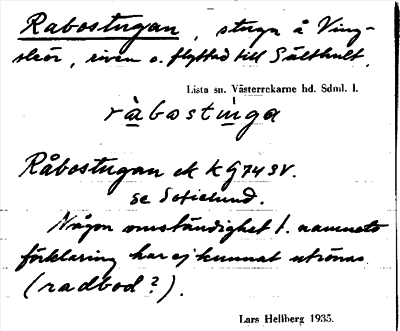 Rabostugan, stuga å Ving-
sleör, riven o. flyttad till Sälthult.
Lista sn. Västerrekarne hd. Sdml. l.
ràbostìnga
Råbostugan ek KG 74 SV.
se Sofielund.
Någon omständighet t. namnets
förklaring har ej kunnat utrönas
(radbod?).
Lars Hellberg 1935.